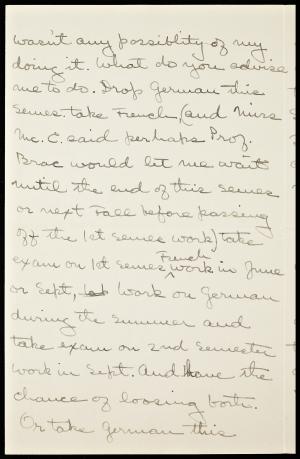 wasn't any possiblity of my
doing it. What do you advise
me to do. Drop German this
semes. take French, (and Miss
Mc. C. said perhaps Prof.
Brac would let me wait
until the end of this semes
or next Fall before passing
off the 1st semes work) take
exam on 1st semes French work in June
or Sept, work on German
during the summer and
take exam on 2nd semester
work in Sept. And have the
chance of loosing both.
Or take German this